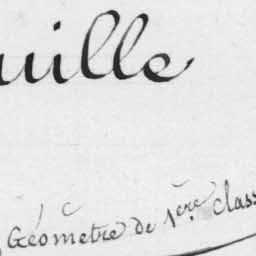 uille
Géometre de 1ère class